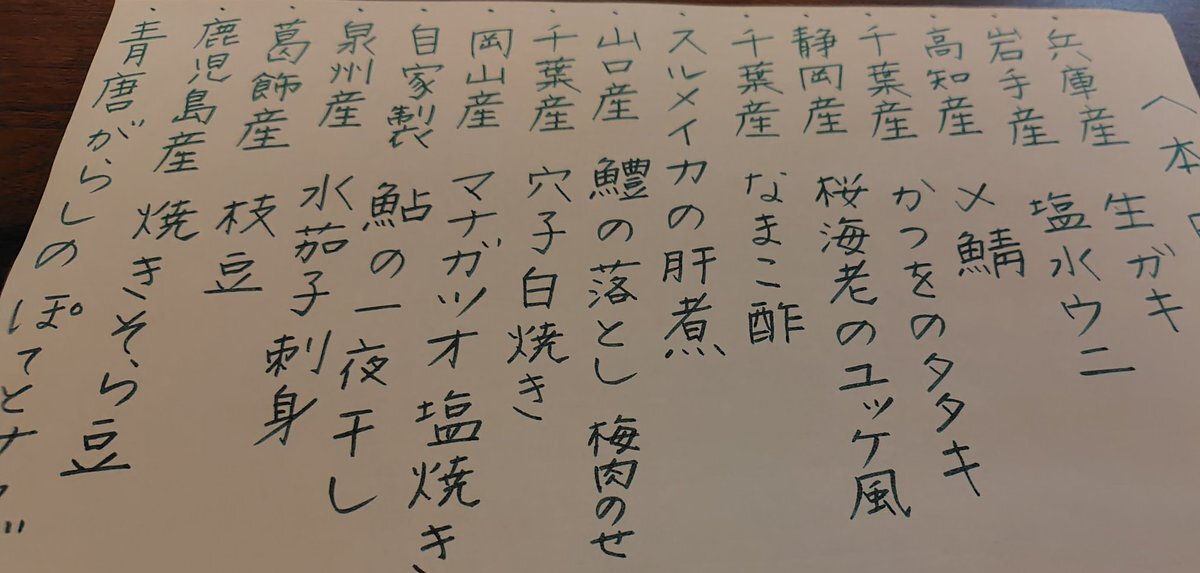 〈本日
・兵庫産 生ガキ
・岩手産 塩水ウニ
・高知産 〆鯖
・千葉産 かつをのタタキ
・静岡産 桜海老のユッケ風
・千葉産 なまこ酢
・スルメイカの肝煮
・山口産 鱧の落とし 梅肉のせ
・千葉産 穴子白焼き
・岡山産 マナガツオ塩焼き
・自家製 鮎の一夜干し
・泉州産 水茄子刺身
・葛飾産 枝豆
・鹿児島産 焼きそら豆
・青唐がらしのぽてと